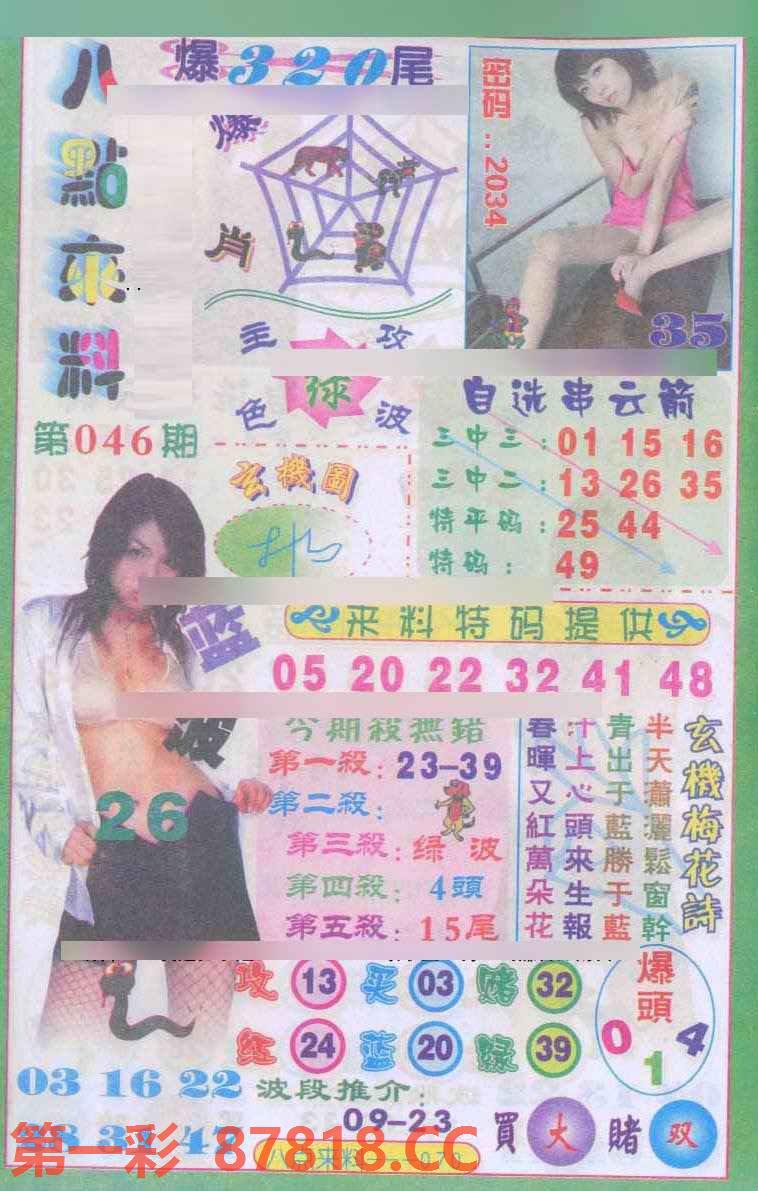 八點來料
爆320尾
爆肖
密码..2034
35
主攻
绿
色波
第046期
玄機圖
自选串云箭
三中三:01 15 16
三中二:13 26 35
特平码:25 44
特码:49
蓝波
26
来料特码提供
05 20 22 32 41 48
今期殺無錯
第一殺:23-39
第二殺:
第三殺:绿波
第四殺:4頭
第五殺:15尾
玄機梅花詩
半天瀟灑鬆窗幹
青出于藍勝于藍
汁上心頭來生報
春暉又紅萬朵花
攻 13 买 03 赌 32
红 24 蓝 20 绿 39
爆頭
0 1 4
03 16 22
波段推介:
09-23
買大賭双
第一彩 87818.CC